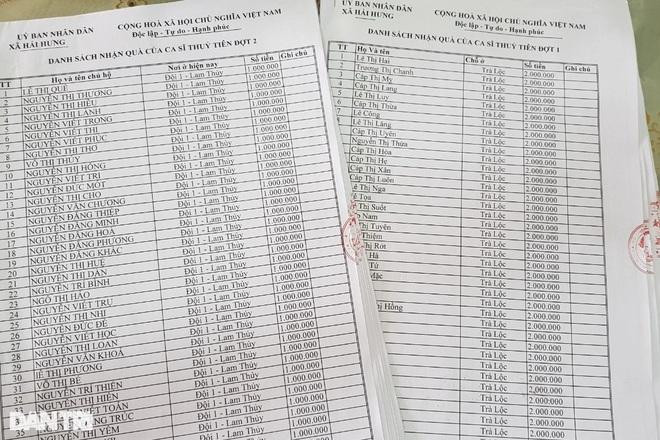 UỶ BAN NHÂN DÂN
XÃ HẢI HƯNG
CỘNG HOÀ XÃ HỘI CHỦ NGHĨA VIỆT NAM
Độc lập - Tự do - Hạnh phúc
DANH SÁCH NHẬN QUÀ CỦA CA SĨ THUỶ TIÊN ĐỢT 2
TT Họ và tên chủ hộ Nơi ở hiện nay Số tiền Ghi chú
1 LÊ THỊ QUẾ Đội 1 - Lam Thủy 1.000.000
2 NGUYỄN THỊ THƯƠNG Đội 1 - Lam Thủy 1.000.000
3 NGUYỄN THỊ HIẾU Đội 1 - Lam Thủy 1.000.000
4 NGUYỄN THỊ LANH Đội 1 - Lam Thủy 1.000.000
5 NGUYỄN VIẾT TRONG Đội 1 - Lam Thủy 1.000.000
6 NGUYỄN VIẾT THI Đội 1 - Lam Thủy 1.000.000
7 NGUYỄN VIẾT PHÚC Đội 1 - Lam Thủy 1.000.000
8 NGUYỄN THỊ THO Đội 1 - Lam Thủy 1.000.000
9 VÕ THỊ THỦY Đội 1 - Lam Thủy 1.000.000
10 NGUYỄN THỊ HỒNG Đội 1 - Lam Thủy 1.000.000
11 NGUYỄN VIẾT TRỊ Đội 1 - Lam Thủy 1.000.000
12 NGUYỄN ĐỨC MỐT Đội 1 - Lam Thủy 1.000.000
13 NGUYỄN THỊ CHO Đội 1 - Lam Thủy 1.000.000
14 NGUYỄN VĂN CHƯƠNG Đội 1 - Lam Thủy 1.000.000
15 NGUYỄN ĐĂNG THIỆP Đội 1 - Lam Thủy 1.000.000
16 NGUYỄN ĐĂNG MINH Đội 1 - Lam Thủy 1.000.000
17 NGUYỄN ĐĂNG HO Đội 1 - Lam Thủy 1.000.000
18 NGUYỄN ĐĂNG PHƯƠNG Đội 1 - Lam Thủy 1.000.000
19 NGUYỄN ĐĂNG KHẮC Đội 1 - Lam Thủy 1.000.000
20 NGUYỄN THỊ HUẾ Đội 1 - Lam Thủy 1.000.000
21 NGUYỄN THỊ DÂN Đội 1 - Lam Thủy 1.000.000
22 NGUYỄN TRI BÌNH Đội 1 - Lam Thủy 1.000.000
23 NGÔ THỊ HẢO Đội 1 - Lam Thủy 1.000.000
24 NGUYỄN VIẾT TRỤ Đội 1 - Lam Thủy 1.000.000
25 NGUYỄN THỊ NHI Đội 1 - Lam Thủy 1.000.000
26 NGUYỄN ĐỨC ĐỀ Đội 1 - Lam Thủy 1.000.000
27 NGUYỄN VIẾT HỌC Đội 1 - Lam Thủy 1.000.000
28 NGUYỄN THỊ LOAN Đội 1 - Lam Thủy 1.000.000
29 NGUYỄN VĂN KHOA Đội 1 - Lam Thủy 1.000.000
30 LÊ THỊ PHƯƠNG Đội 1 - Lam Thủy 1.000.000
31 VÕ THỊ BÉ Đội 1 - Lam Thủy 1.000.000
NGUYỄN TRI THIỆN Đội 1 - Lam Thủy 1.000.000
NGUYỄN THỊ HIỀN Đội 1 - Lam Thủy 1.000.000
TOÀN Đội 1 - Lam Thủy 1.000.000
TRÚC Đội 1 - Lam Thủy 1.000.000
THỊ YẾM Đội 1 - Lam Thủy
UỶ BAN NHÂN DÂN
XÃ HẢI HƯNG
CỘNG HOÀ XÃ HỘI CHỦ NGHĨA VIỆT NAM
Độc lập - Tự do - Hạnh phúc
DANH SÁCH NHẬN QUÀ CỦA CA SĨ THUỶ TIÊN ĐỢT 1
TT Họ Và Tên Chỗ ở Số tiền Ghi chú
1 Lê Thị Hai Trà Lộc 2.000.000
2 Trương Thị Chanh Trà Lộc 2.000.000
3 Cáp Thị Mỹ Trà Lộc 2.000.000
4 Cáp Thị Lang Trà Lộc 2.000.000
5 Lê Thị Luy Trà Lộc 2.000.000
6 Cáp Thị Thừa Trà Lộc 2.000.000
7 Lê Công Trà Lộc 2.000.000
8 Lê Thị Lăng Trà Lộc 2.000.000
Cáp Thị Uyên Trà Lộc 2.000.000
Nguyễn Thị Thừa Trà Lộc 2.000.000
Cáp Thị Hòa Trà Lộc 2.000.000
Cáp Thị Hẹ Trà Lộc 2.000.000
Cáp Thị Xăn Trà Lộc 2.000.000
Cáp Thị Luôn Trà Lộc 2.000.000
Lê Thị Nga Trà Lộc 2.000.000
Tọa Trà Lộc 2.000.000
Thị Suốt Trà Lộc 2.000.000
Nam Trà Lộc 2.000.000
Tuyên Trà Lộc 2.000.000
Thiệm Trà Lộc 2.000.000
Thị Rớt Trà Lộc 2.000.000
Hà Trà Lộc 2.000.000
Tứ Trà Lộc 2.000.000
Mặc Trà Lộc 2.000.000
Trà Lộc 2.000.000
Thị Hồng Trà Lộc 2.000.000
Trà Lộc 2.000.000
Trà Lộc 2.000.000
Trà Lộc 2.000.000
Trà Lộc 2.000.000
Trà Lộc 2.000.000
Trà Lộc 2.000.000
Trà Lộc 2.000.000
Trà Lộc 2.000.000
Trà Lộc 2.000.000
DÂN TRÍ